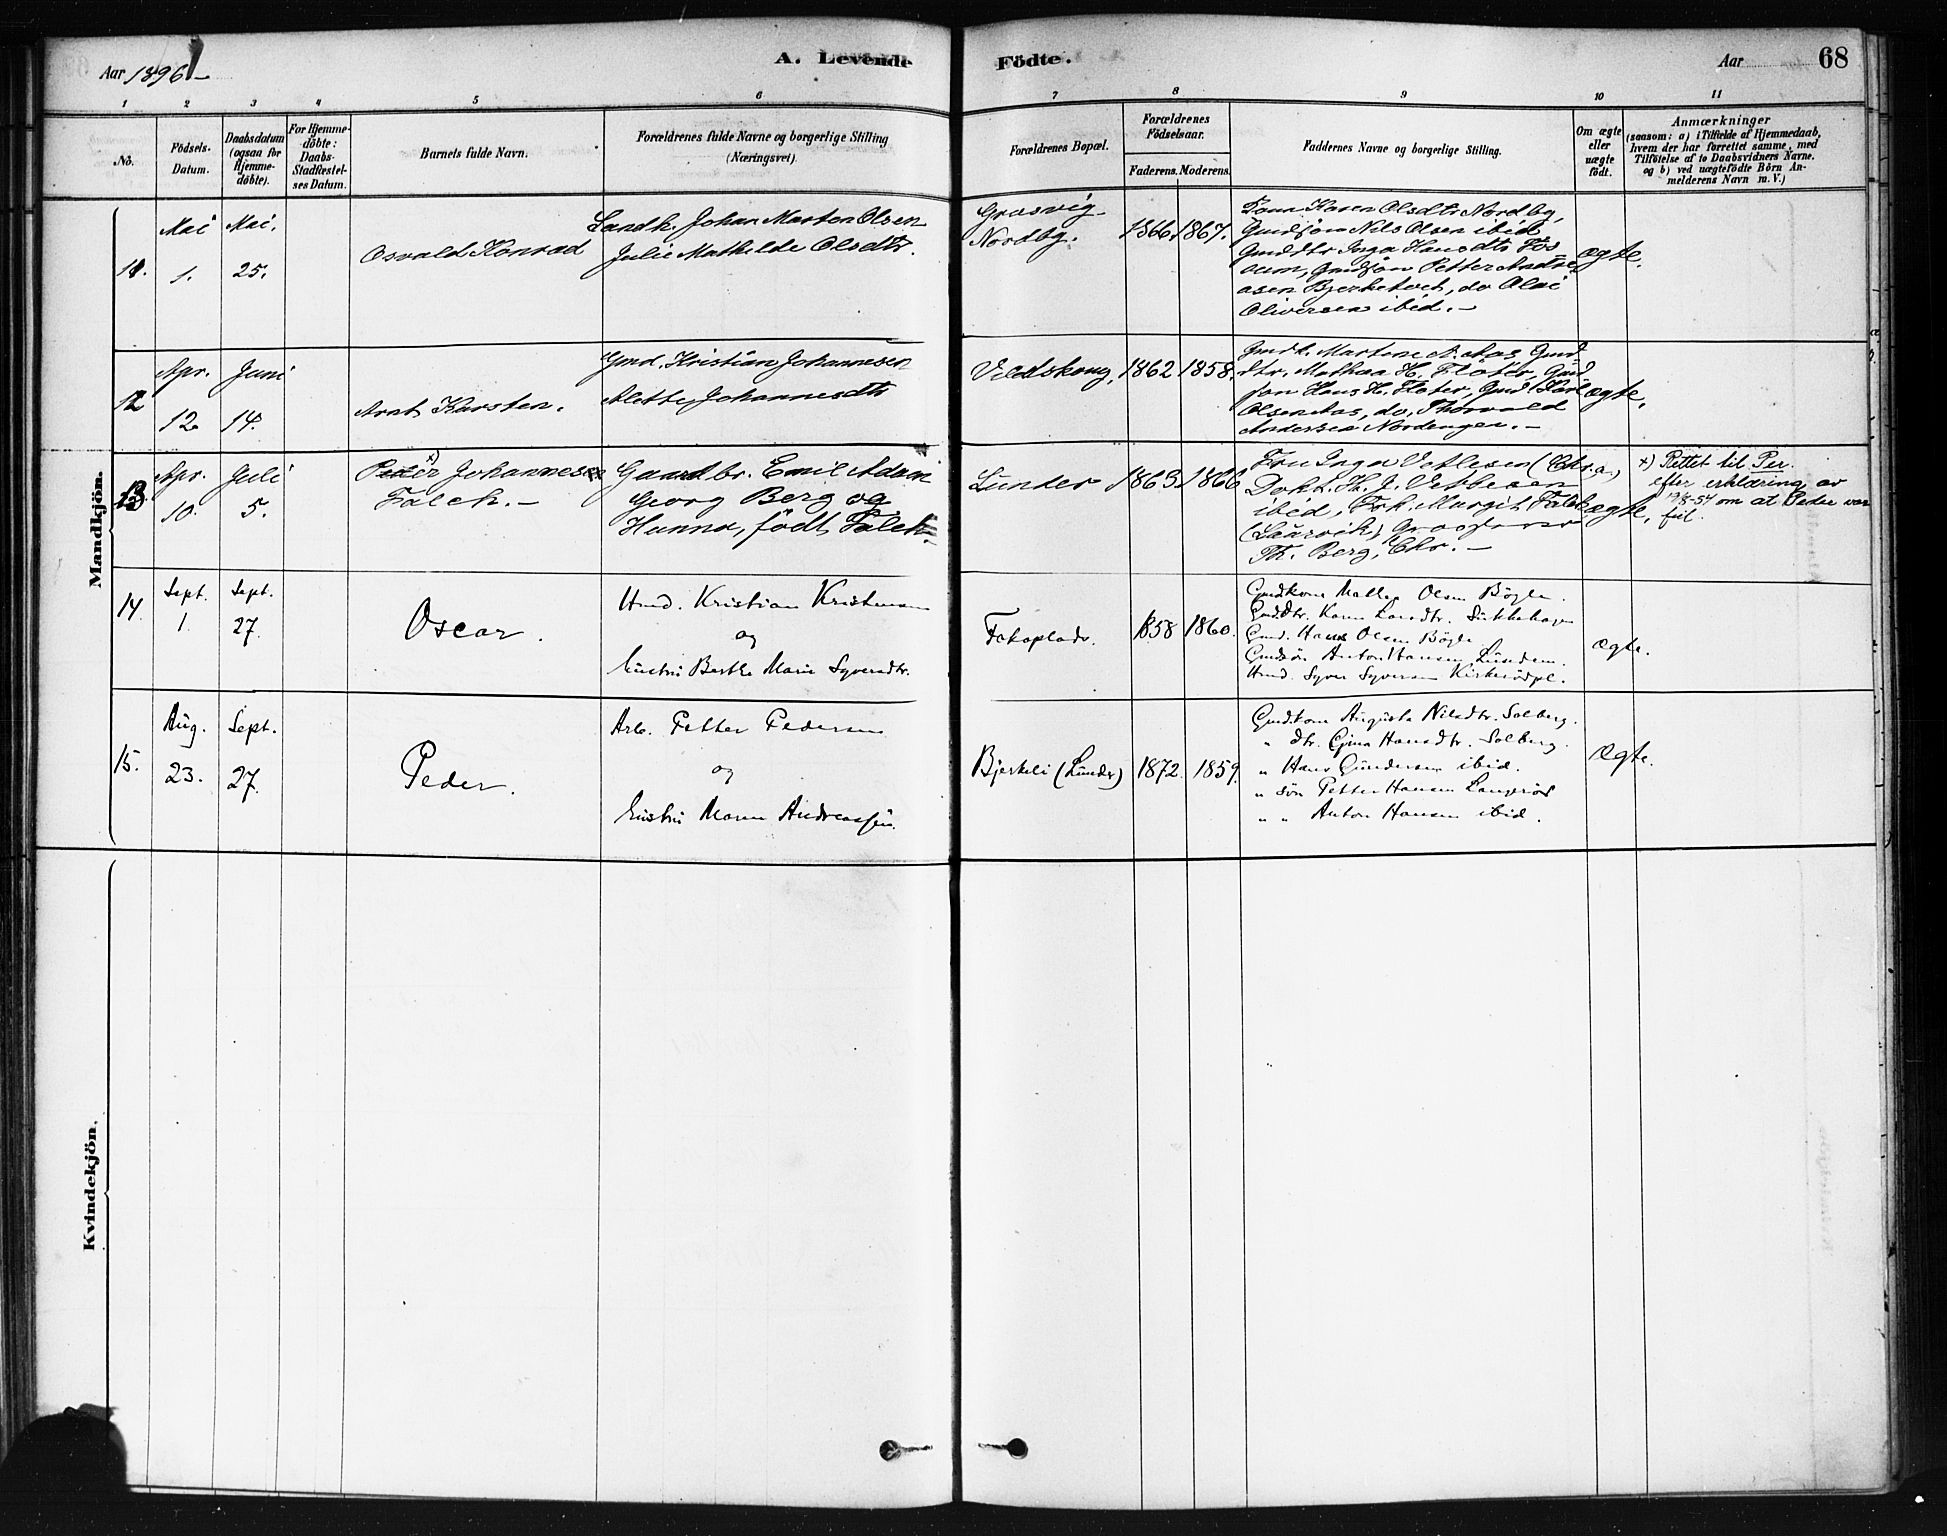 Aar 1896
A. Levende
Födte.
Aar
68
1
2
3
4
5
6
7
8
9
10
11
No.
Födsels-
Datum.
Daabsdatum
(ogsaa for
Hjemme-
döbte).
For Hjemme-
döbte:
Daabs-
Stadfæstel-
ses Datum.
Barnets fulde Navn.
Forældrenes fulde Navne og borgerlige Stilling
(Næringsvei).
Forældrenes Bopæl.
Forældrenes
Födselsaar.
Faderens. Moderens.
Faddernes Navne og borgerlige Stilling.
Om ægte
eller
uægte
födt.
Anmærkninger
(saasom: a) i Tilfælde af Hjemmedaab,
hvem der har forrettet samme, med
Tilföielse af to Daabsvidners Navne.
og b) ved uægtefödte Börn An-
melderens Navn m. V.)
Mandkjön.
11.
Mai
1.
Mai.
25.
Osvald Konrad
Landh. Johan Marten Olsen
Julie Mathilde Olsdtr.
Græsvig
Nordby.
1866
1867.
Karen Olsdtr Nordby,
Gmdsøn Nils Olsen ibid
Gmddtr Inga Hansdtr Fos
um, Gmdsøn Petter Andre
asen Bjerketvet, do Olai
Oliversen ibid. —
ægte.
12
Apr.
12
Juni
14.
Arnt Karsten.
Gmd. Kristian Johannesen
Alette Johannesdtr
1862
1858.
Gmdk. Martene N. Aas, Gmd
dtr. Mathea H. Floter, Gmd
søn Hans H. Floter, Gmd Karl
Olsen Aas, do. Thorvald
Andersen Nordengen. —
ægte.
13.
Apr.
10.
Juli
5.
x)
Peder Johannes
Falck. —
Gaardbr. Emil Adam
Georg Berg og
Hanna, født Falck.
Lunder
1863
1866
Fru Inga Vetlesen (Chr.a.,)
Dokt. H. J. Vetlesen
ibid, Frk. Margit Falck
(Laurvik)
Th. Berg, Chr. —
ægte.
x) Rettet til Per.
efter erklæring av
19/8-54 om at Peder var
feil.
14.
Sept.
1.
Sept.
27.
Oscar.
Hmd. Kristian Kristensen
og
Hustru Berthe Marie Syversdtr.
1858
1860.
Gmdkone Olsen Bøgle.
Gmddtr. Karen
Gmd. Hans Olsen Bøgle
Gmdsøn Anton Hansen Lundem.
Hmd. Syver Syversen Kirkerødpl.
ægte.
15.
Aug.
23.
Sept.
27.
Peder.
Arb. Petter Pedersen
og
Hustru Maren Andreassen.
Bjerkeli (Lunder)
1872.
1859.
Gmdkone Augusta Nilsdtr. Solberg.
" dtr. Gina Hansdtr. Solberg.
" Hans Gundersen ibid.
" søn Petter Hansen Langerød
" " Anton Hansen ibid.
Ægte.
Kvindekjön.